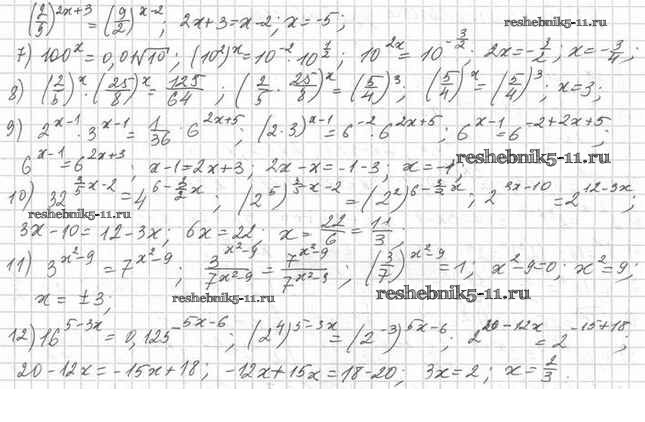 (2/9)^{2x+3} = (9/2)^{x-2}; 2x+3=x-2; x=-5;
reshebnik5-11.ru
7) 100^x = 0,01√10; (10²)^x = 10^{-2}·10^{1/2}; 10^{2x} = 10^{-3/2}; 2x=-3/2; x=-3/4;
8) (2/5)^x · (25/8)^x = 125/64; (2/5 · 25/8)^x = (5/4)^3; (5/4)^x = (5/4)^3; x=3;
9) 2^{x-1} · 3^{x-1} = 1/36 · 6^{2x+5}; (2·3)^{x-1} = 6^{-2} · 6^{2x+5}; 6^{x-1} = 6^{-2+2x+5};
6^{x-1} = 6^{2x+3}; x-1=2x+3; 2x-x=-1-3; x=-4;
reshebnik5-11.ru
10) 32^{3/5x-2} = 4^{6-3/2x}; (2^5)^{3/5x-2} = (2²)^{6-3/2x}; 2^{3x-10} = 2^{12-3x};
reshebnik5-11.ru
3x-10=12-3x; 6x=22; x=22/6=11/3;
11) 3^{x²-9} = 7^{x²-9}; 3^{x²-9}/7^{x²-9} = 7^{x²-9}/7^{x²-9}; (3/7)^{x²-9} = 1; x²-9=0; x²=9;
x=±3;
reshebnik5-11.ru
reshebnik5-11.ru
12) 16^{5-3x} = 0,125^{5x-6}; (2^4)^{5-3x} = (2^{-3})^{5x-6}; 2^{20-12x} = 2^{-15+18};
20-12x=-15x+18; -12x+15x=18-20; 3x=2; x=2/3.